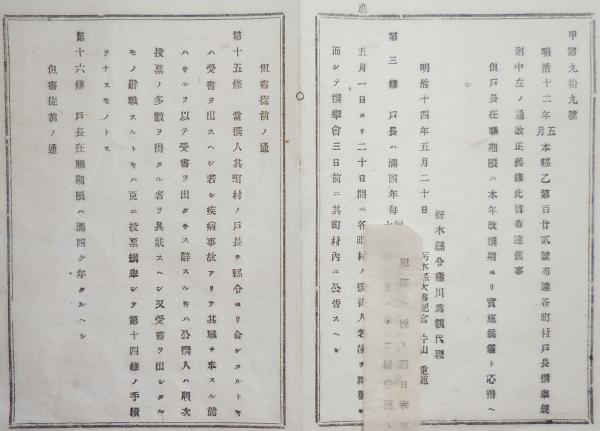 甲第九拾九號
明治十二年五月本縣乙第百廿貳號布達各町村戸長撰擧規
則中左ノ通改正候條此旨布達候事
但戸長在職期限ハ本年改撰期ヨリ實施候儀ト心得ヘシ
明治十四年五月二十日
栃木縣令藤川爲親代理
栃木縣大書記官 片山重範
第三條 戸長ハ滿四年每
五月一日ヨリ二十日間ニ各町村ノ
而シテ撰擧會三日前ニ其町村內ニ公告スヘシ
但書從前ノ通
第十五條 當撰人其町村ノ戸長チ縣令ヨリ命シタルトキ
ハ受書ヲ出スヘシ若シ疾病事故アリテ其職チ奉スル能
ハサルヲ以テ受書ヲ出サス辭スルキハ公撰人ハ順次
投票ノ多數ヲ得タル者ヲ具狀スヘシ又受書ヲ出シタル
モノ辭職スルトキハ更ニ投票撰擧シテ第十四條ノ手續
ヲナスモノトス
第十六條 戸長在職期限ハ滿四ケ年タルヘシ
但書從前ノ通